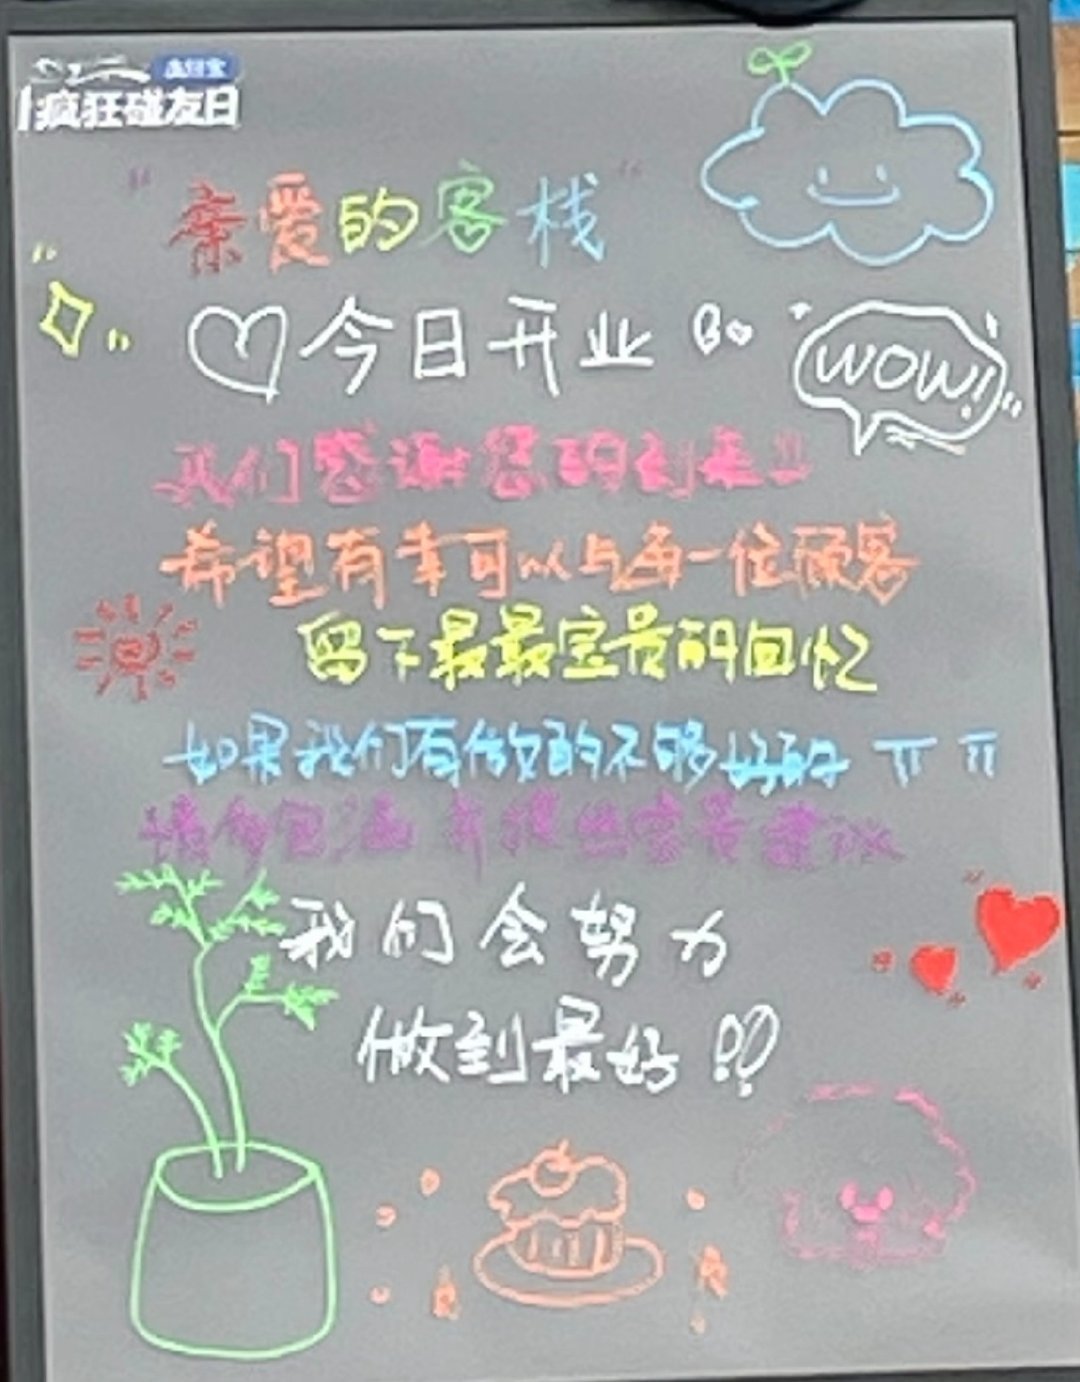 支付宝
疯狂碰友日
"亲爱的客栈"
♡今日开业
WOW!
我们感谢您的到来!!
希望有幸可以与每一位顾客
留下最最宝贵的回忆
如果我们有做的不够好的 TT TT
请多包涵 并提出宝贵建议
我们会努力
做到最好!!